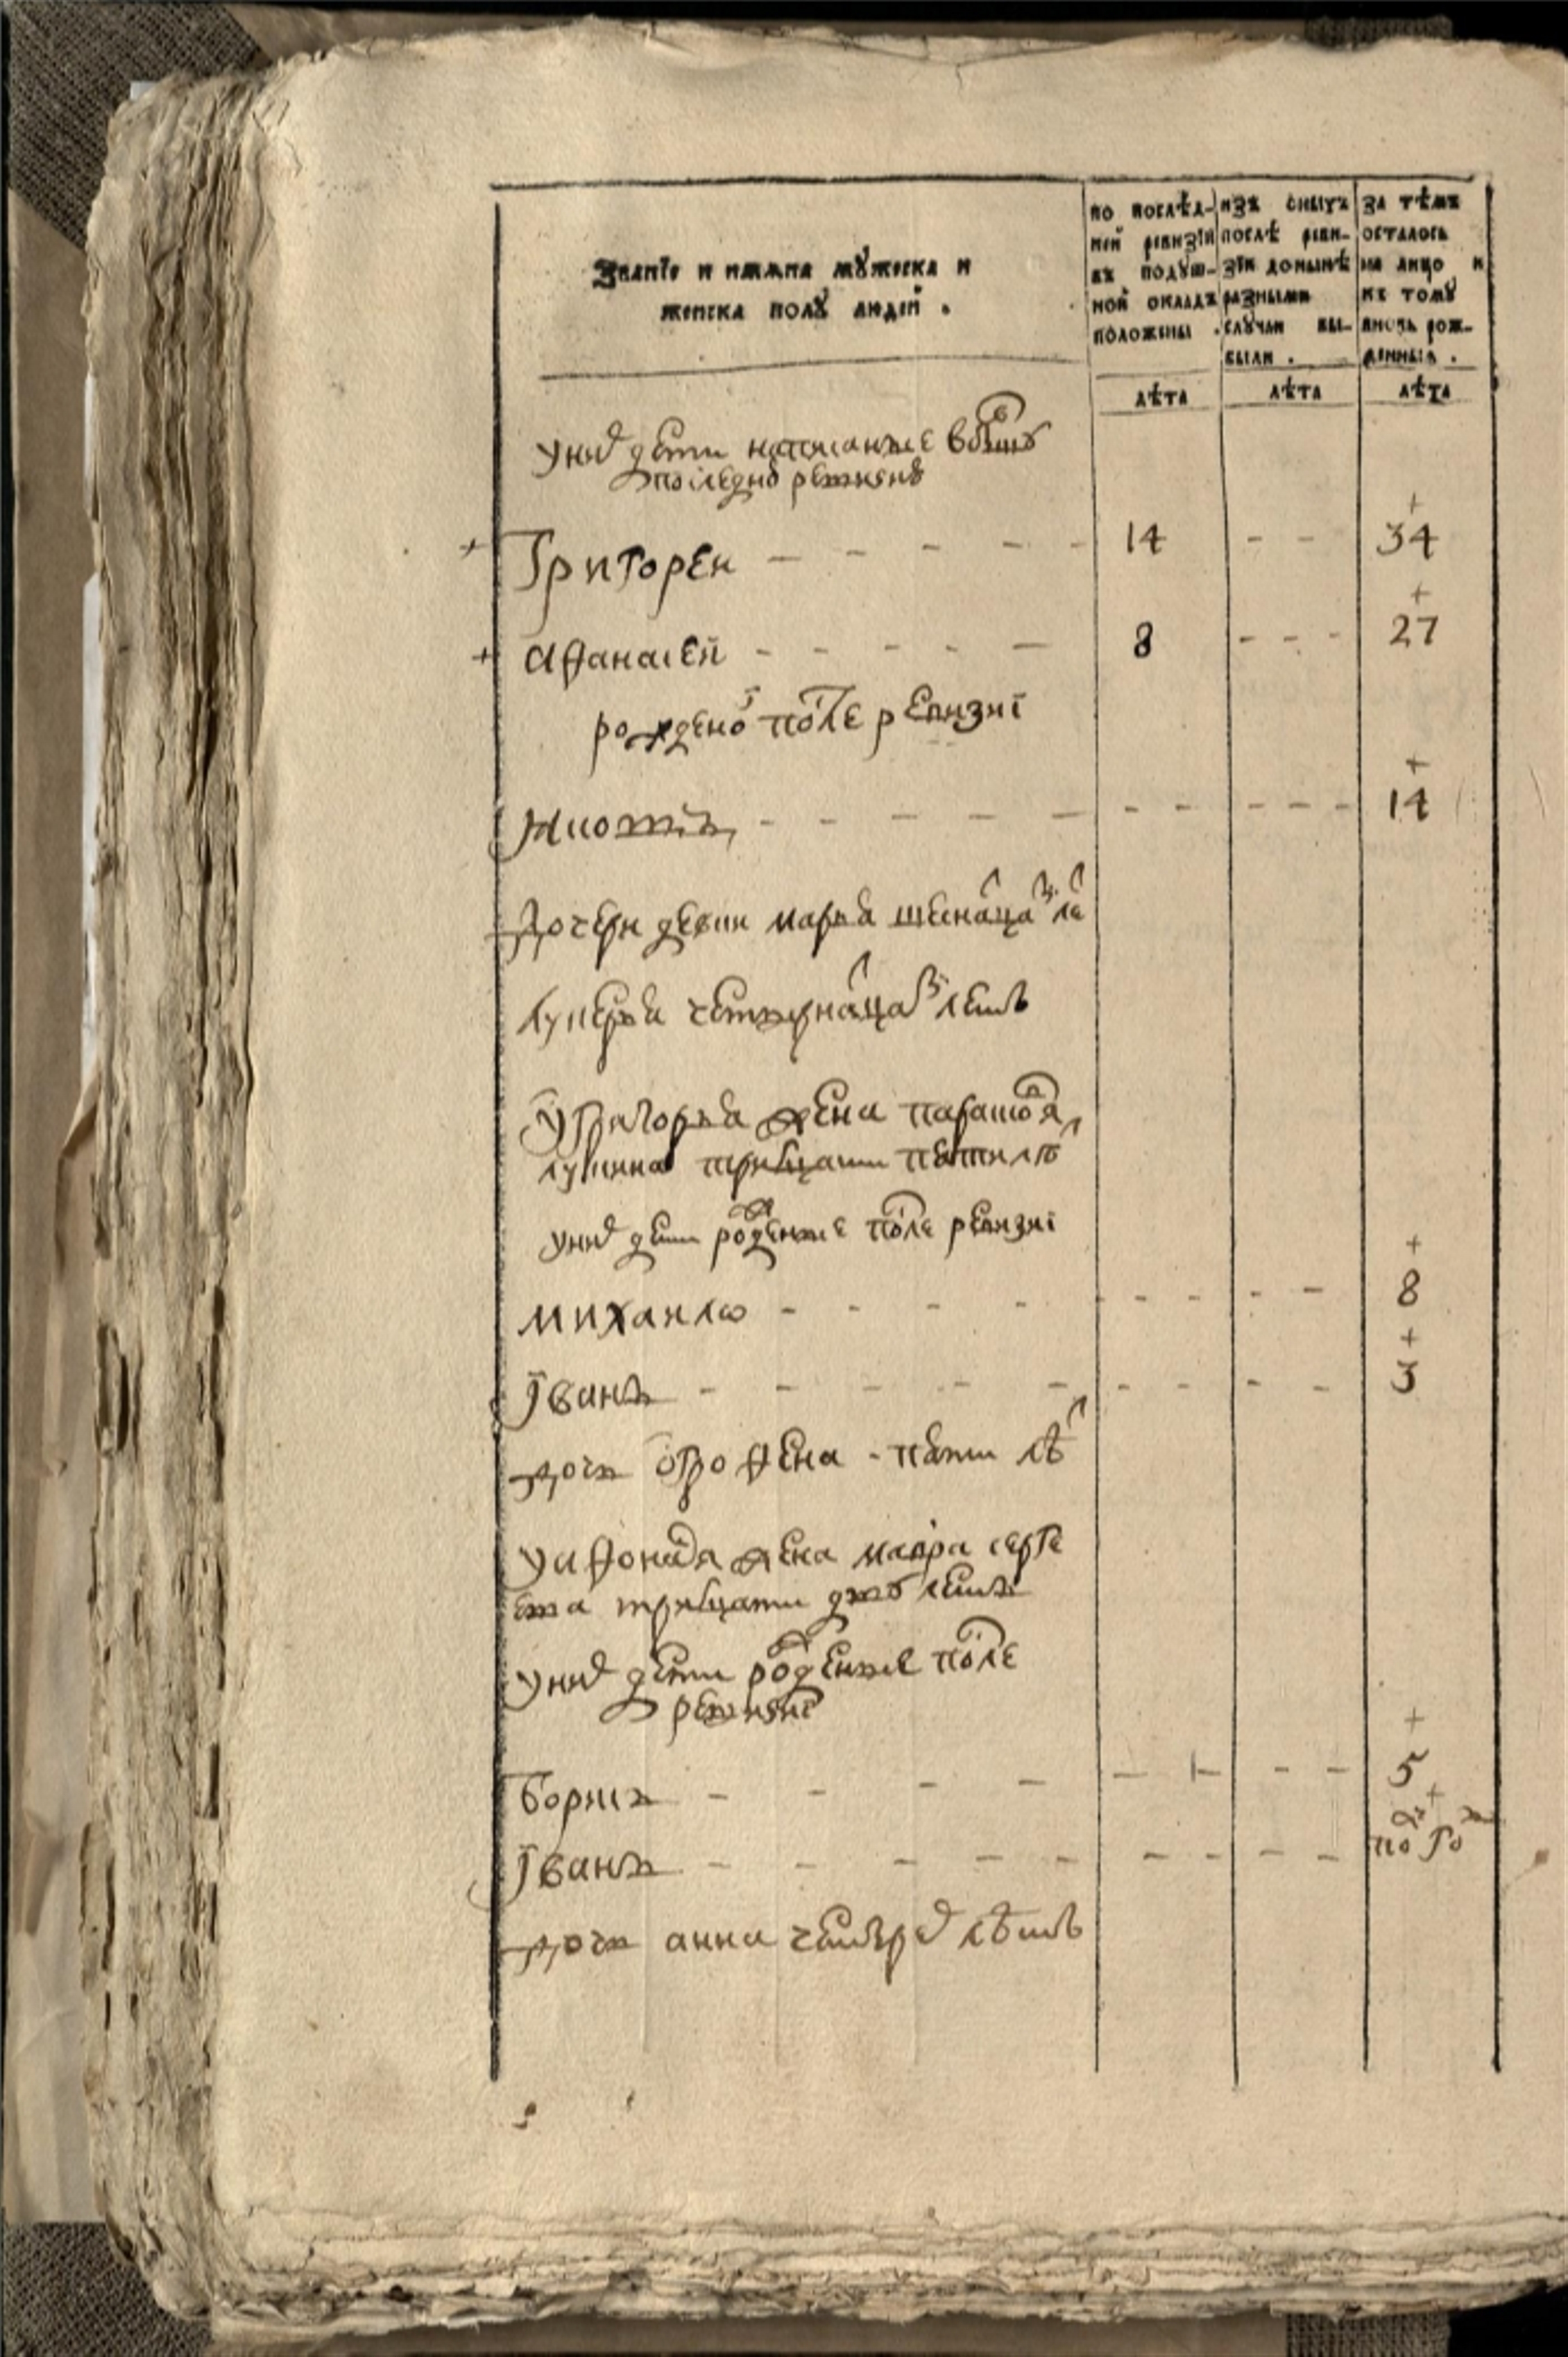 Званїе и имяна мꙋжеска и
женска полꙋ людей .
по послѣд-
ней ревизїи
въ подꙋш-
ной окладъ
положены .
изъ оныхъ
послѣ реви-
зїи донынѣ
разными
слꙋчаи вы-
были .
за тѣмъ
осталось
на лицо и
къ томꙋ
вновь рож-
денныя .
лѣта лѣта лѣта
у них дети написанные в бывшую
последню ревизию
Григореи - - - - - 14 - - 34
Афанасей - - - - - 8 - - - 27
рожденой после ревизиї
- - - - - - - - - - 14
дочери девки марья шеснацати лет
лукерья четырнацати летъ
у Григорья жена парасковья
лукина тритцати пяти летъ
у них дети рожденные после ревизиї
михаило - - - - - - - - - - 8
Їванъ - - - - - - - - - - 3
дочь офрофена - пяти лѣт
у афонася жена мавра серге
ева тритцати двух летъ
у них дети рожденные после
ревизиї
борисъ - - - - - - - - 5
Їванъ - - - - - - - - - полгода
дочь анна четырех лѣтъ